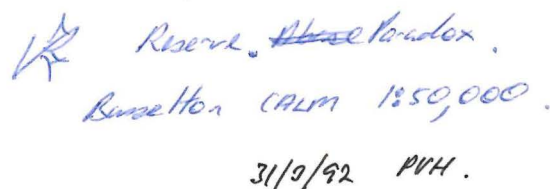 Reserve. Paradox.
Busselton CALM 1:50,000.
31/3/92 PVH.